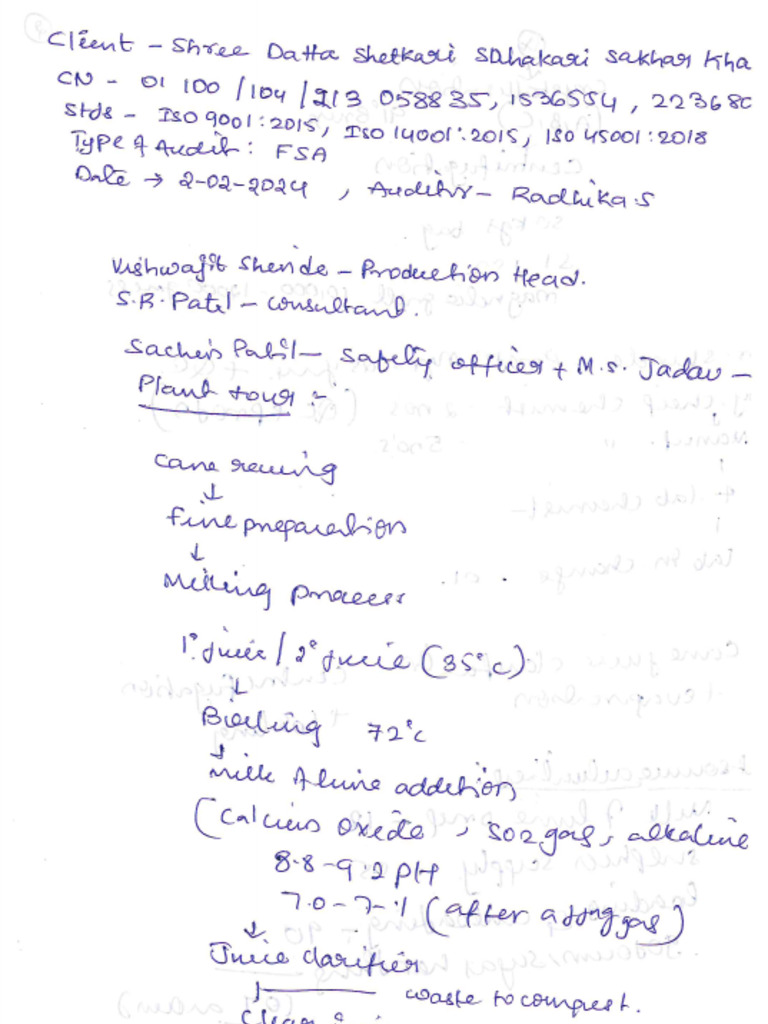 Client - Shree Datta Shetkari Sahakari Sakhar Kha
CN - 01 100 / 104 / 213 058835, 1536554, 223680
Stds - ISO 9001:2015, ISO 14001:2015, ISO 45001:2018
Type of Audit: FSA
Date → 2-02-2024, Auditor - Radhika.S
Vishwajit Shende - Production Head.
S.R. Patil - consultant.
Sachin Patil - Safety officer + M.S. Jadav -
Plant tour :-
Cane
↓
fine preparation
↓
Milling process
1° juice / 2° juice (35°C)
↓
Boiling 72°C
↓
Milk of lime addition
(Calcium oxide, SO2 gas, alkaline
8.8-9.2 pH
7.0-7.1 (after adding gas)
↓
Juice clarifier
waste to compost.